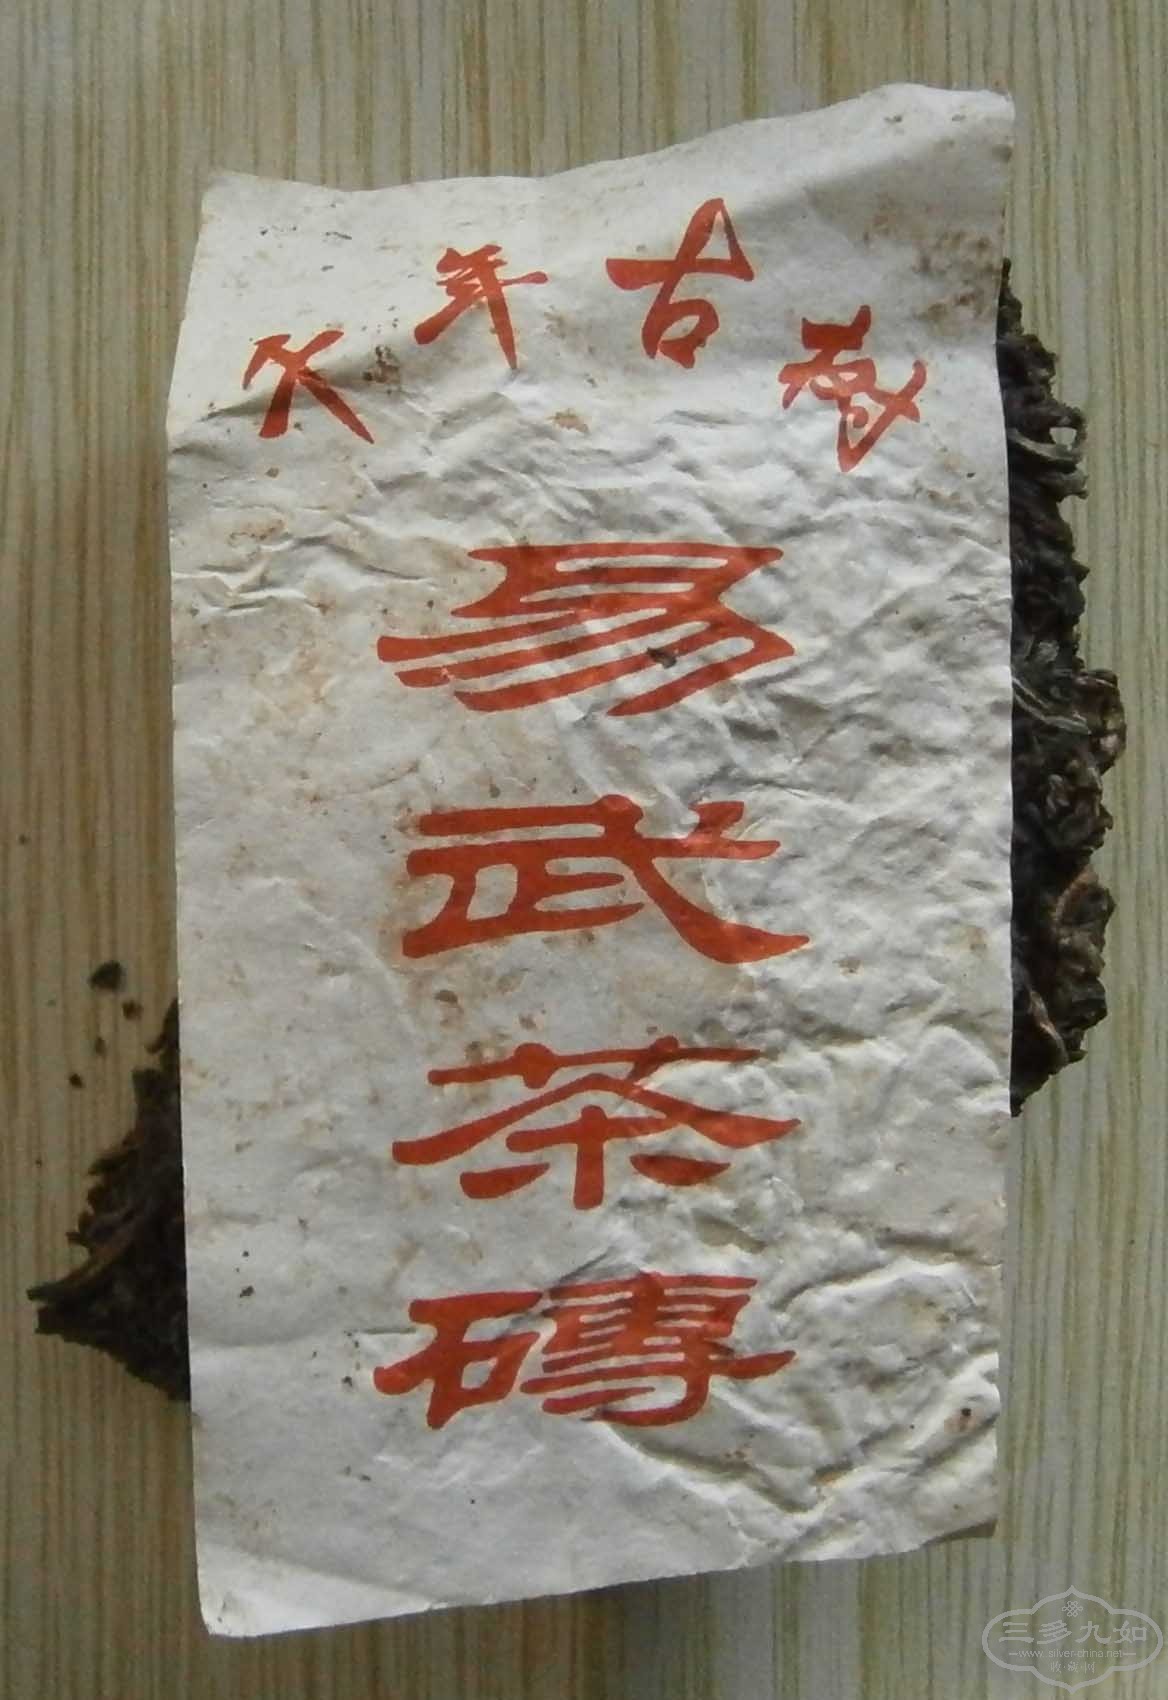 久年古
易武茶磚
三多九如
www.silver-china.net
收藏网